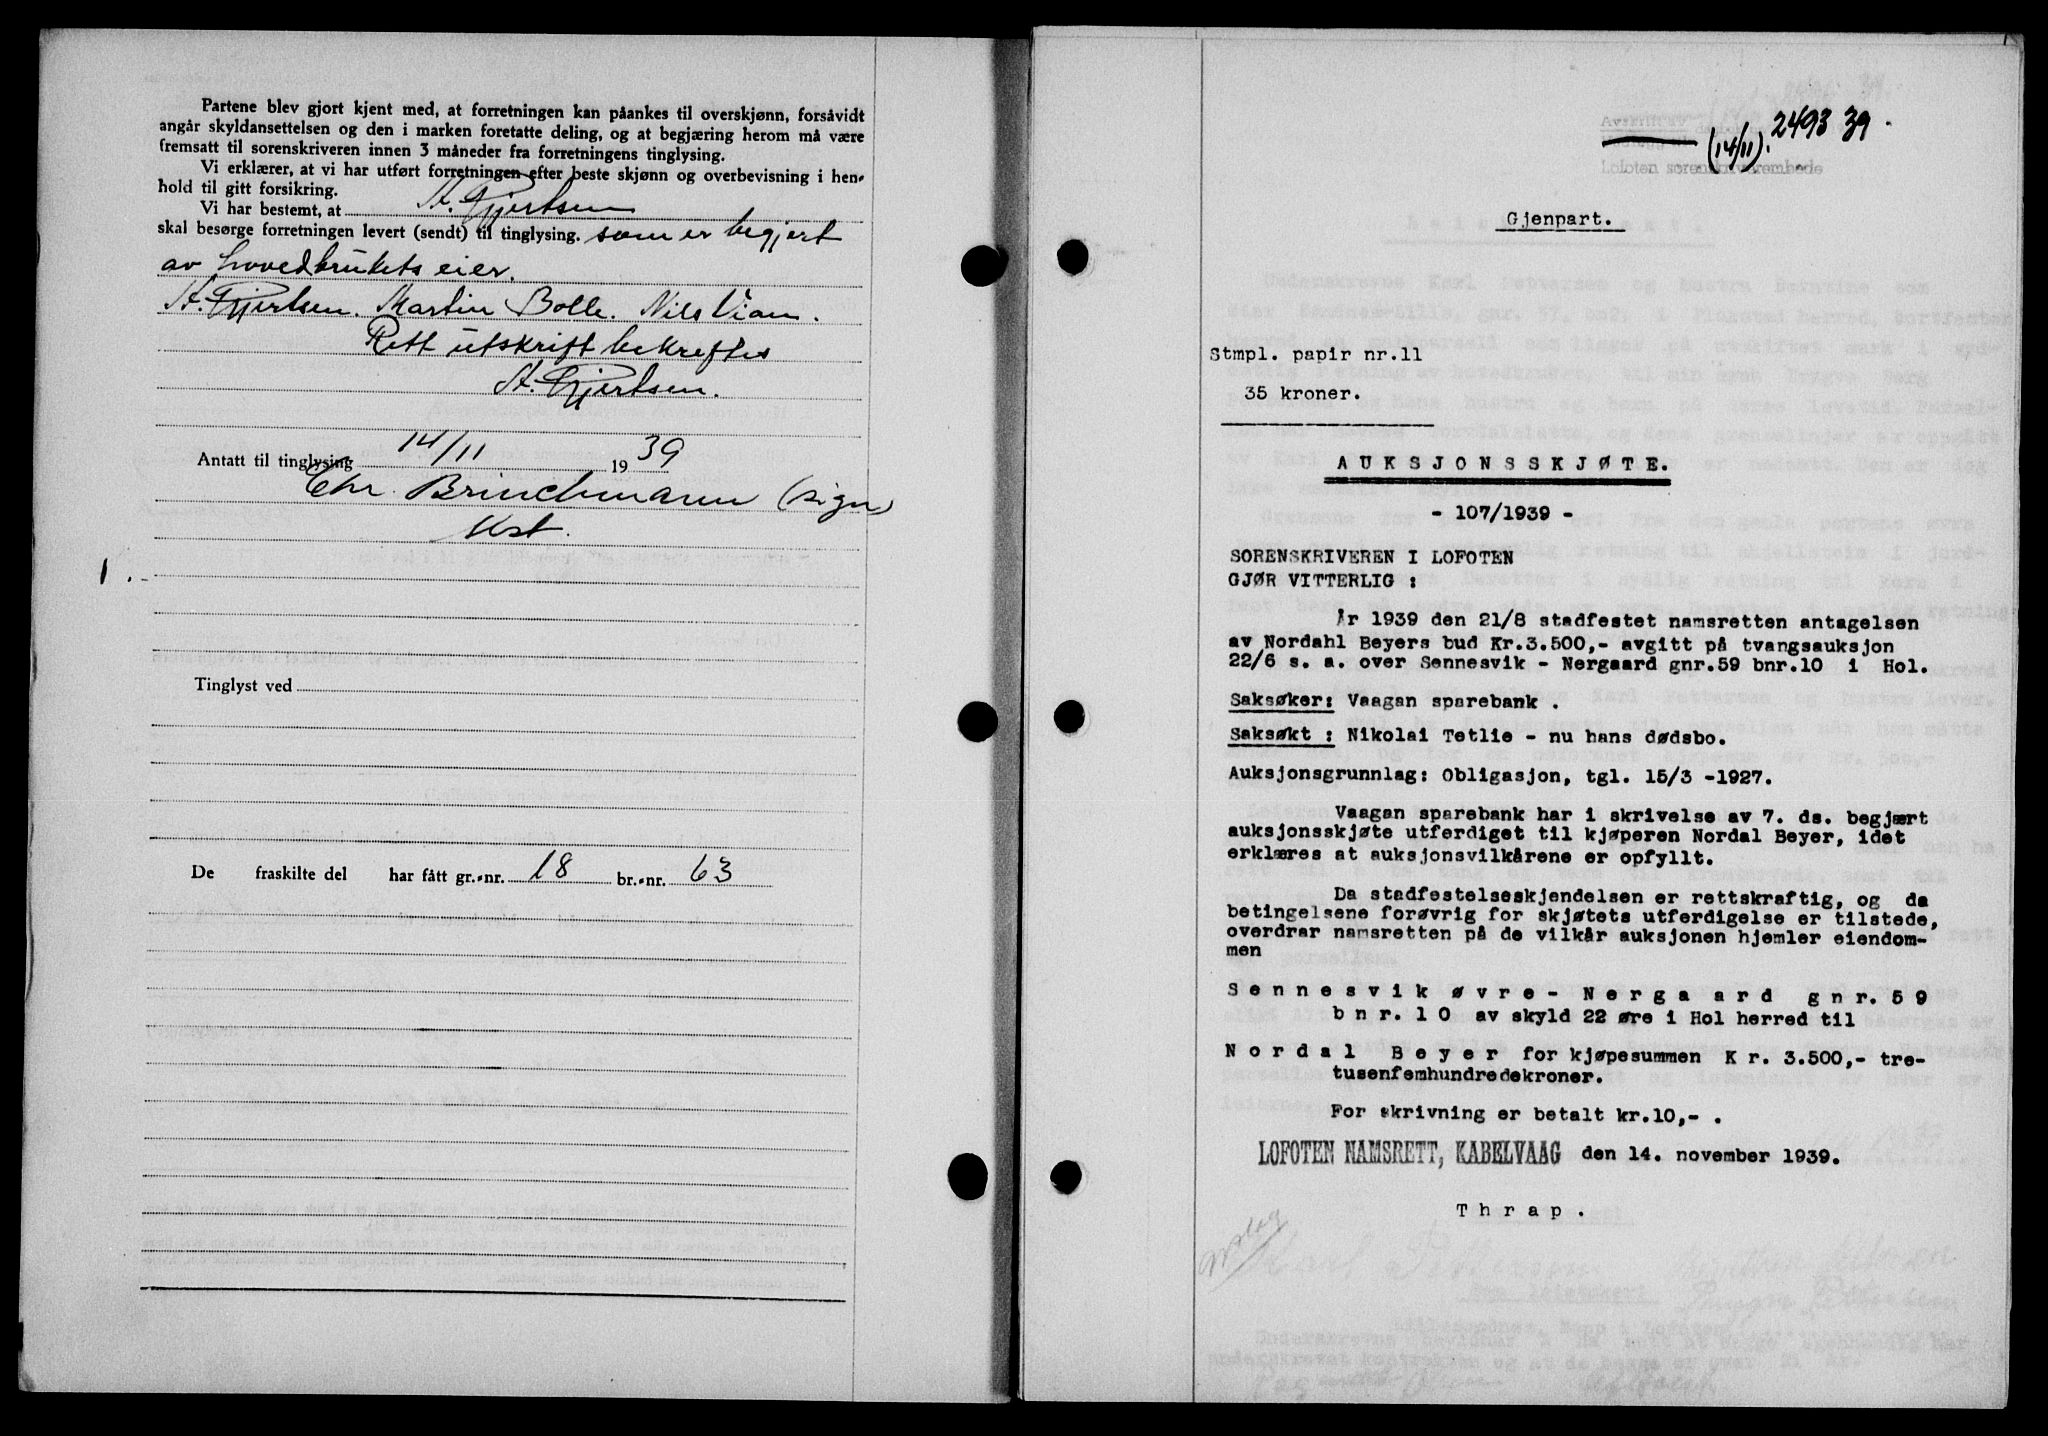 Partene blev gjort kjent med, at forretningen kan påankes til overskjønn, forsåvidt
angår skyldansettelsen og den i marken foretatte deling, og at begjæring herom må være
fremsatt til sorenskriveren innen 3 måneder fra forretningens tinglysing.
Vi erklærer, at vi har utført forretningen efter beste skjønn og overbevisning i hen-
hold til gitt forsikring.
Vi har bestemt, at A. Gjertsen
skal besørge forretningen levert (sendt) til tinglysing. som er begjert
av hovedbrukets eier.
A. Gjertsen. Martin Bolle. Nils Vian.
Rett utskrift bekreftes
A. Gjertsen.
Antatt til tinglysing 14/11 1939
Chr. Brinchmann (sign)
Kst.
Tinglyst ved
De fraskilte del har fått gr.-nr. 18 br.-nr. 63
2493 39.
(14/11).
Lofoten sorenskriverembede
Gjenpart.
Stmpl. papir nr.11
35 kroner.
AUKSJONSSKJØTE.
- 107/1939 -
SORENSKRIVEREN I LOFOTEN
GJØR VITTERLIG :
År 1939 den 21/8 stadfestet namsretten antagelsen
av Nordahl Beyers bud Kr.3.500,- avgitt på tvangsauksjon
22/6 s. a. over Sennesvik - Nergaard gnr.59 bnr.10 i Hol.
Saksøker: Vaagan sparebank .
Saksøkt : Nikolai Tetlie - nu hans dødsbo.
Auksjonsgrunnlag: Obligasjon, tgl. 15/3 -1927.
Vaagan sparebank har i skrivelse av 7. ds. begjært
auksjonsskjøte utferdiget til kjøperen Nordal Beyer, idet
erklæres at auksjonsvilkårene er opfyllt.
Da stadfestelseskjendelsen er rettskraftig, og da
betingelsene forøvrig for skjøtets utferdigelse er tilstede,
overdrar namsretten på de vilkår auksjonen hjemler eiendom-
men
Sennesvik øvre - Nergaard gnr. 59
bnr. 10 av skyld 22 øre i Hol herred til
Nordal Beyer for kjøpesummen Kr. 3.500,- tre-
tusenfemhundredekroner.
For skrivning er betalt kr.10,- .
LOFOTEN NAMSRETT, KABELVAAG den 14. november 1939.
Thrap.